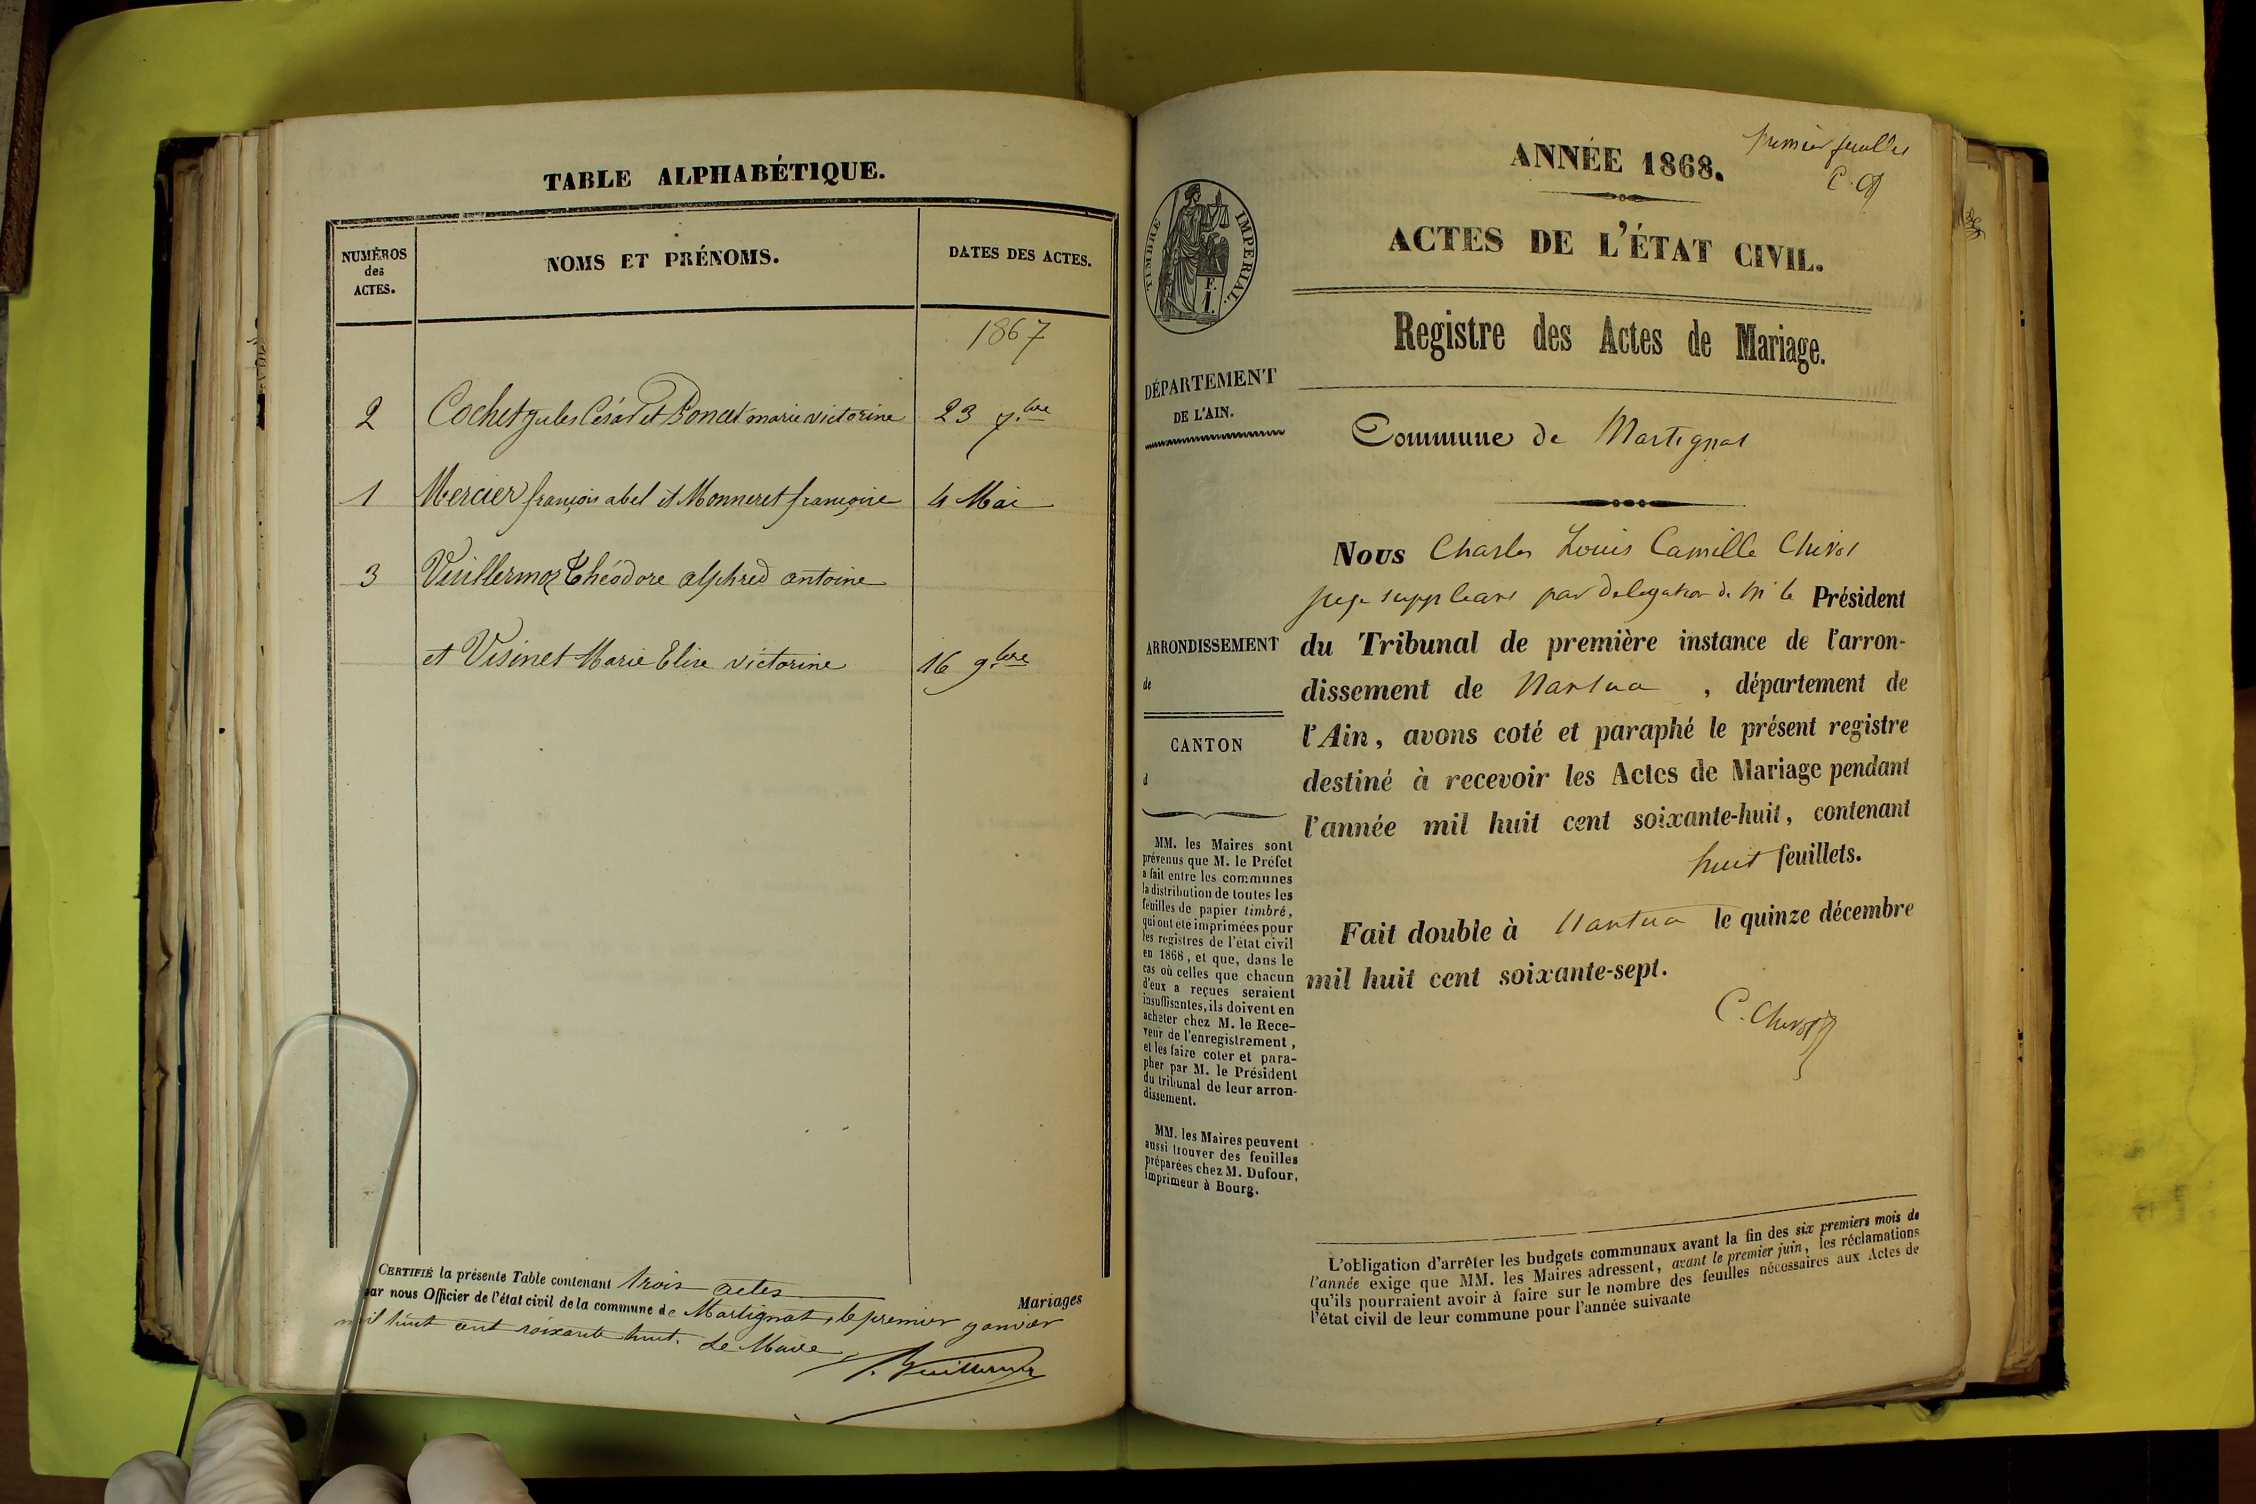 TABLE ALPHABÉTIQUE.
NUMÉROS
des
ACTES.
NOMS ET PRÉNOMS.
DATES DES ACTES.
1867
2 Cochet Jules César et Poncet marie victorine 23 7.bre
1 Mercier françois abel et Monneret françoise 4 Mai
3 Vuillermoz Théodore alphred antoine
et Visinet Marie Elise victorine 16 9.bre
CERTIFIÉ la présente Table contenant trois actes
par nous Officier de l'état civil de la commune de Martignat, le premier janvier
mil huit cent soixante huit. Le Maire
Mariages
premier feuillet
ANNÉE 1868.
ACTES DE L'ÉTAT CIVIL.
TIMBRE IMPÉRIAL.
F.
1.
Registre des Actes de Mariage.
DÉPARTEMENT
DE L'AIN.
Commune de Martignat
ARRONDISSEMENT
de
CANTON
d
MM. les Maires sont
prévenus que M. le Préfet
a fait entre les communes
la distribution de toutes les
feuilles de papier timbré,
qui ont été imprimées pour
les registres de l'état civil
en 1868, et que, dans le
cas où celles que chacun
d'eux a reçues seraient
insuffisantes, ils doivent en
acheter chez M. le Rece-
veur de l'enregistrement,
et les faire coter et para-
pher par M. le Président
du tribunal de leur arron-
dissement.
MM. les Maires peuvent
aussi trouver des feuilles
préparées chez M. Dufour,
imprimeur à Bourg.
Nous Charles Louis Camille Chivot
juge suppleant par delegation de M le Président
du Tribunal de première instance de l'arron-
dissement de Nantua, département de
l'Ain, avons coté et paraphé le présent registre
destiné à recevoir les Actes de Mariage pendant
l'année mil huit cent soixante-huit, contenant
huit feuillets.
Fait double à Nantua le quinze décembre
mil huit cent soixante-sept.
C. Chivot
L'obligation d'arrêter les budgets communaux avant la fin des six premiers mois de
l'année exige que MM. les Maires adressent, avant le premier juin, les réclamations
qu'ils pourraient avoir à faire sur le nombre des feuilles nécessaires aux Actes de
l'état civil de leur commune pour l'année suivante